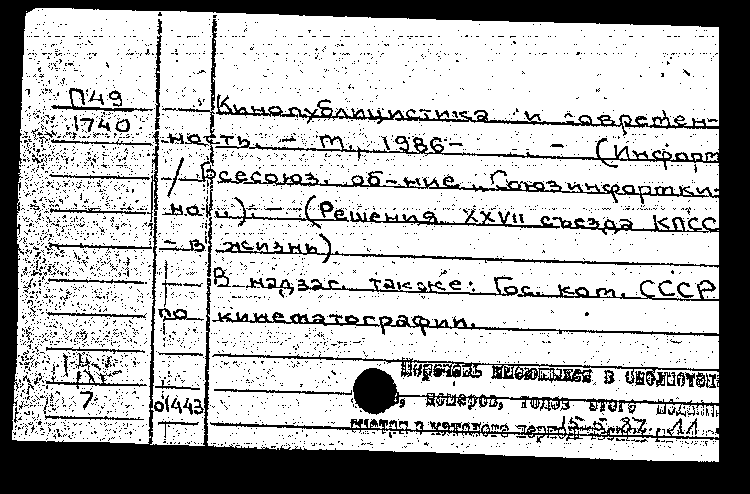 П49
1740
Кинопублицистика и современ-
ность. – М., 1986– . – (Информ
/ Всесоюз. об-ние „Союзинформки-
но“). – (Решения XXVII съезда КПСС
– в жизнь).
В надзаг. также: Гос. ком. СССР
по кинематографии.
Перечень имеющихся в библиотеке
номеров, годов этого издания
смотри в каталоге период
15-5 87 11
7
01443